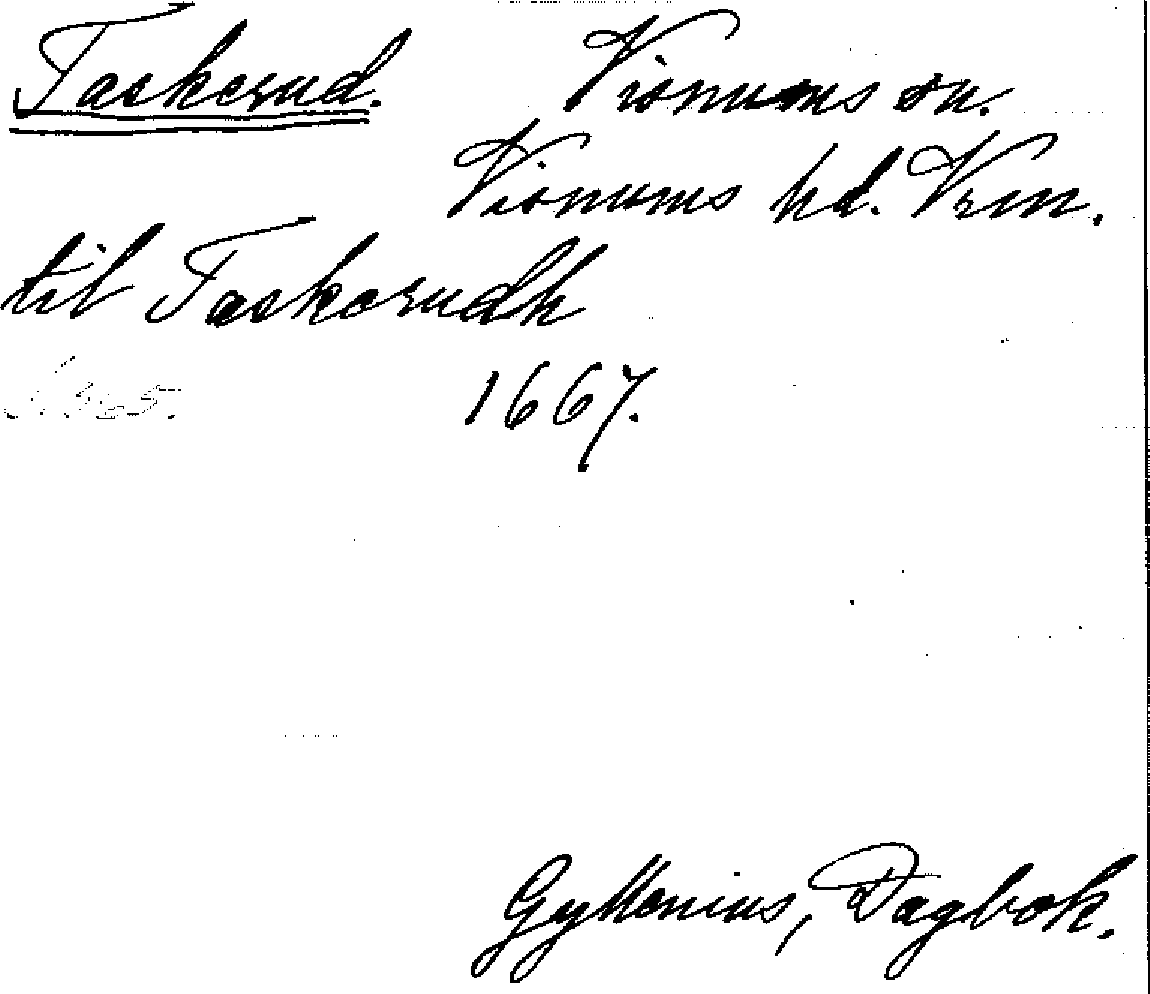 Taskerud. Visnums sn.
Visnums hd. Vrm.
til Taskerudh
S. 325. 1667.
Gyllenius, Dagbok.